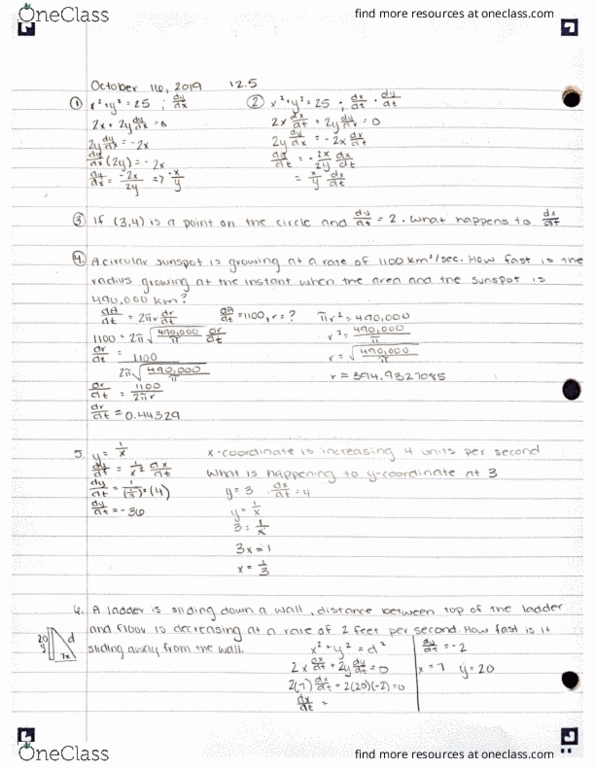 OneClass find more resources at oneclass.com
October 16, 2019 12.5
① x²+y²=25 ; dy/dx ② x²+y²=25 ; dx/dt · dy/dt
2x+2y dy/dx=0 2x dx/dt + 2y dy/dt=0
2y dy/dx=-2x 2y dy/dx = -2x dx/dt
dy/dx (2y)=-2x dy/dt = -2x/2y dx/dt
dy/dx = -2x/2y => -x/y = x/y dx/dt
③ If (3,4) is a point on the circle and dy/dt = 2. What happens to dx/dt
④. A circular sunspot is growing at a rate of 1100 km²/sec. How fast is the
radius growing at the instant when the area and the sunspot is
490,000 km?
dA/dt = 2πr dr/dt dA/dt=1100, r=? πr²=490,000
1100=2π√(490,000/π) dr/dt r²=490,000/π
dr/dt = 1100/(2π√(490,000/π)) r=√(490,000/π)
dr/dt = 1100/2πr r=394.9327085
dr/dt=0.44329
5. y=1/x x-coordinate is increasing 4 units per second
dy/dt = 1/x² dx/dt What is happening to y-coordinate at 3
y=3 dx/dt=4
dy/dt=-36 y=1/x
3=1/x
3x=1
x=1/3
6. A ladder is sliding down a wall, distance between top of the ladder
and floor is decreasing at a rate of 2 feet per second. How fast is it
sliding away from the wall. x²+y²=d² dy/dt=-2
20 y d 7x
2x dx/dt+2y dy/dt=0 x=7 y=20
2(7) dx/dt+2(20)(-2)=0
dx/dt =
OneClass find more resources at oneclass.com